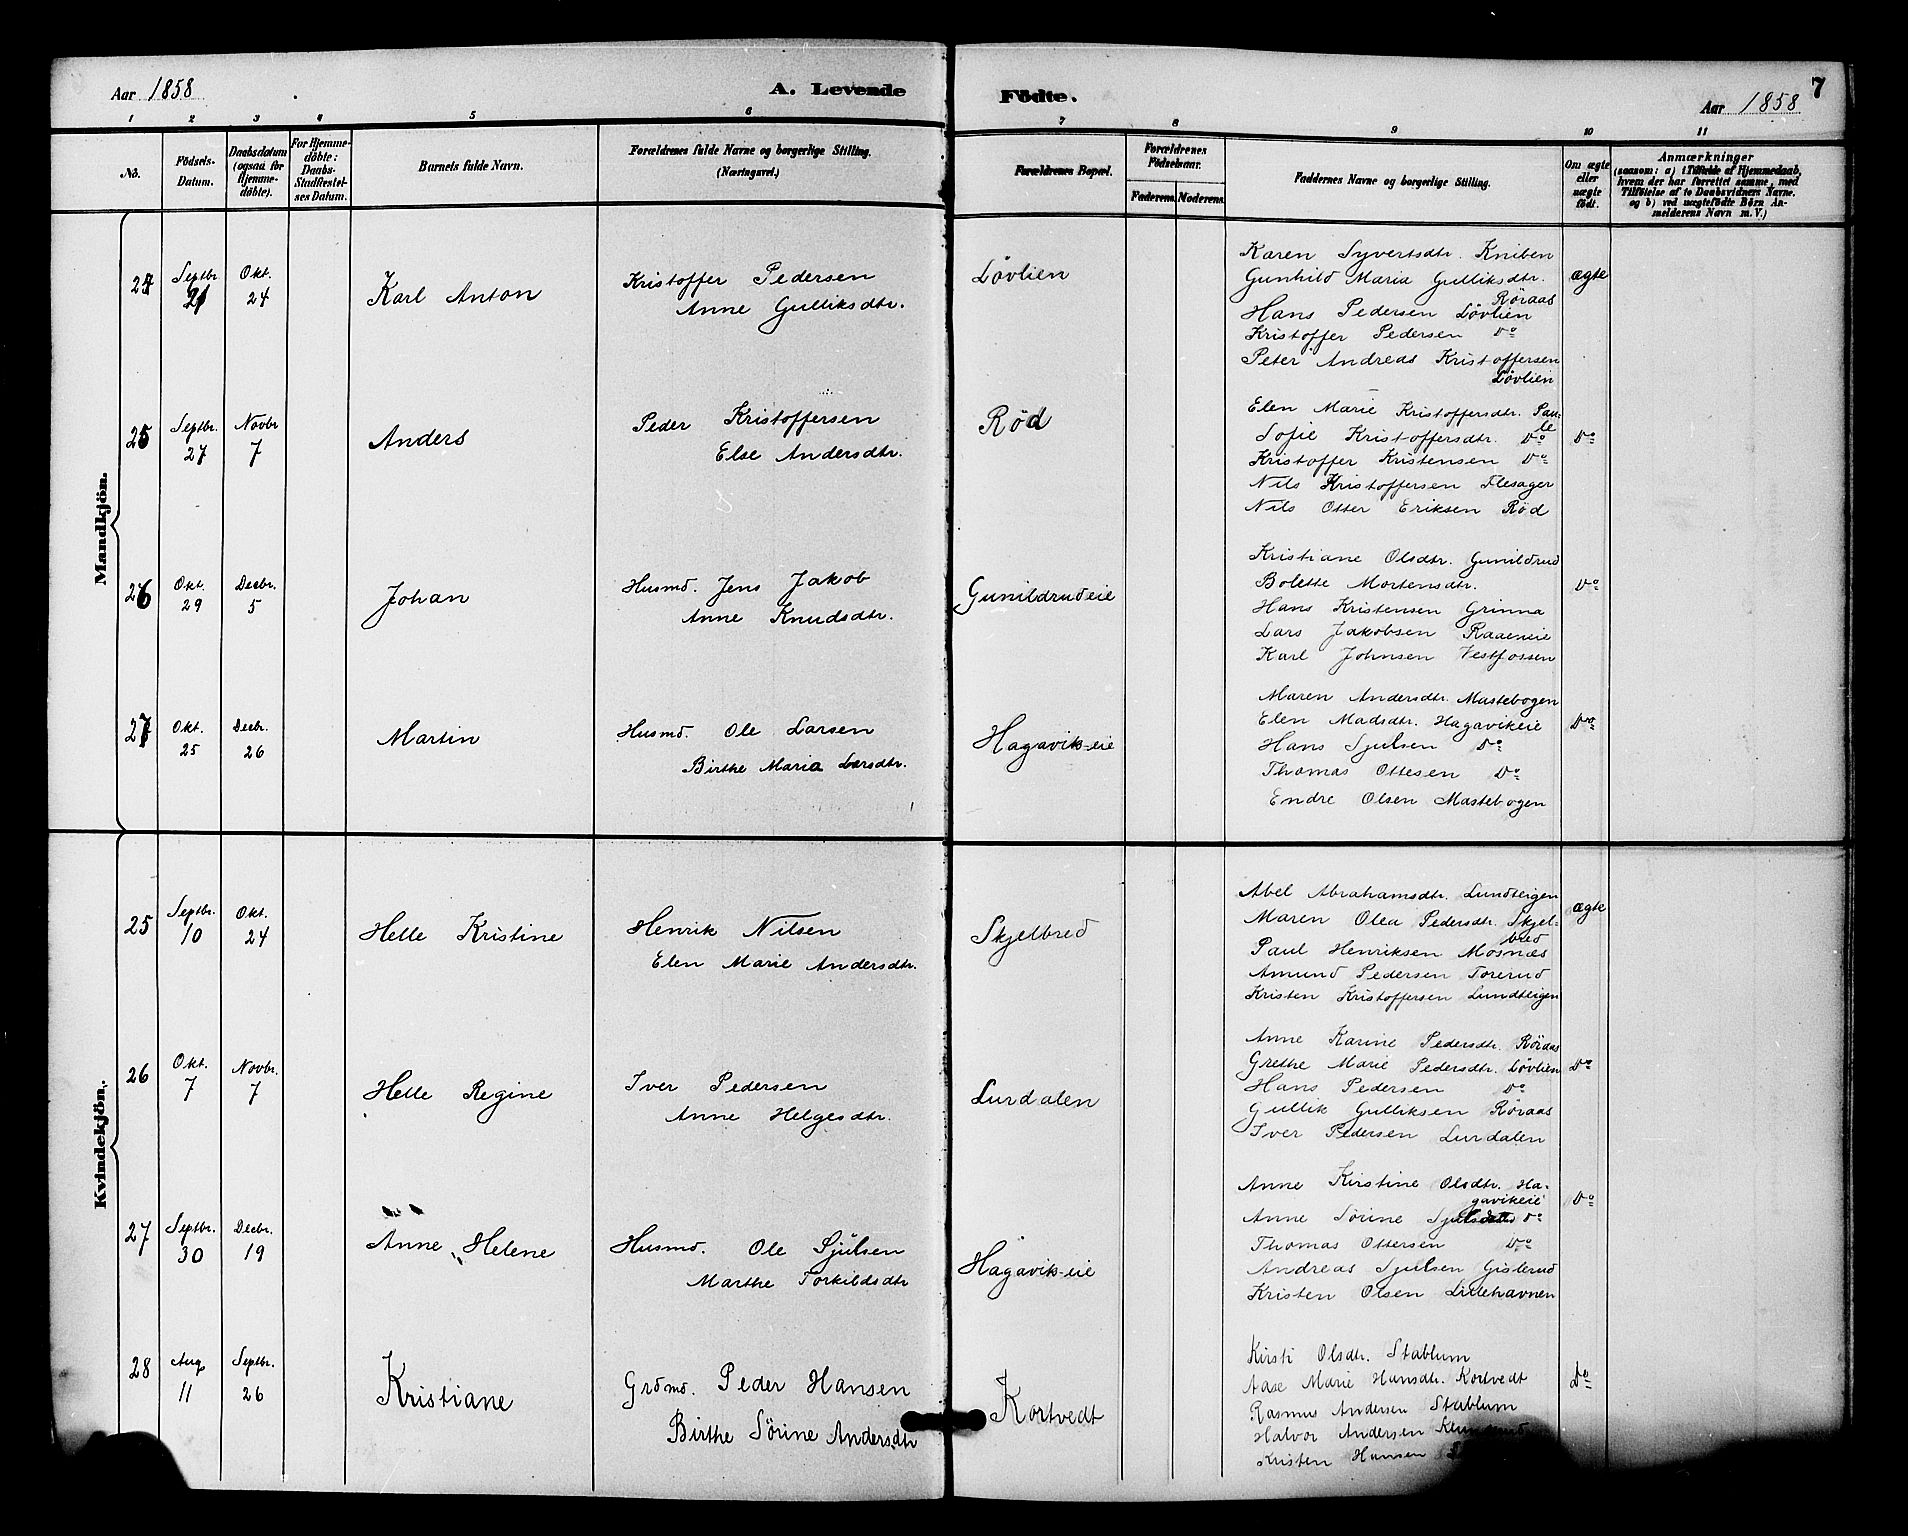 Aar 1858
A. Levende
Födte.
7
Aar 1858
1 2 3 4 5 6 7 8 9 10 11
No.
Födsels-
Datum.
Daabsdatum
(ogsaa for
Hjemme-
döbte).
For Hjemme-
döbte:
Daabs-
Stadfæstel-
ses Datum.
Barnets fulde Navn.
Forældrenes fulde Navne og borgerlige Stilling.
(Næringsvei.)
Forældrenes Bopæl.
Forældrenes
Födselsaar.
Faderens. Moderens.
Faddernes Navne og borgerlige Stilling.
Om ægte
eller
uægte
födt.
Anmærkninger
(saasom: a) i Tilfælde af Hjemmedaab,
hvem der har forrettet samme, med
Tilföielse af to Daabsvidners Navne.
og b) ved uægtefödte Börn An-
melderens Navn m. V.)
Mandkjön.
24
Septbr.
21
Okt.
24
Karl Anton
Kristoffer Pedersen
Anne Gulliksdtr.
Løvlien
Karen Syvertsdtr. Kniben
Gunhild Maria Gulliksdtr.
Røraas
Hans Pedersen Løvlien
Kristoffer Pedersen Do
Peter Andreas Kristoffersen
Løvlien
ægte
25
Septbr.
27
Novbr
7
Anders
Peder Kristoffersen
Else Andersdtr.
Rød
Elen Marie Kristoffersdtr. Pau-
le
Sofie Kristoffersdtr. Do
Kristoffer Kristensen Do
Nils Kristoffersen Flesager
Nils Otter Eriksen Rød
Do
26
Okt.
29
Decbr.
5
Johan
Husmd. Jens Jakob
Anne Knudsdtr.
Gunildrudeie
Kristiane Olsdtr. Gunildrud
Bolette Mortensdtr.
Hans Kristensen Grinna
Lars Jakobsen Raaeneie
Karl Johnsen Vestfossen
Do
27
Okt.
25
Decbr.
26
Martin
Husmd. Ole Larsen
Birthe Maria Larsdtr.
Hagavik-eie
Maren Andersdtr. Mastebogen
Elen Madsdtr. Hagavikeie
Hans Sjulsen Do
Thomas Ottesen Do
Endre Olsen Mastebogen
Do
Kvindekjön.
25
Septbr.
10
Okt.
24
Helle Kristine
Henrik Nilsen
Elen Marie Andersdtr.
Skjelbred
Abel Abrahamsdtr. Lundteigen
Maren Olea Pedersdtr. Skjel-
bred
Paul Henriksen Mosnæs
Amund Pedersen Torerud
Kristen Kristoffersen Lundteigen
ægte
26
Okt.
7
Novbr.
7
Helle Regine
Iver Pedersen
Anne Helgesdtr.
Lurdalen
Anne Karine Pedersdtr. Røraas
Grethe Marie Pedersdtr. Løvlien
Hans Pedersen Do
Gullik Gulliksen Røraas
Iver Pedersen Lurdalen
Do
27
Septbr.
30
Decbr.
19
Anne Helene
Husmd. Ole Sjulsen
Marthe Torkildsdtr
Hagavik-eie
Anne Kirstine Olsdtr. Ha-
gavikeie
Anne Sørine Do
Thomas Ottersen Do
Andreas Sjulsen Gislerud
Kristen Olsen Lillehavnen
Do
28
Aug.
11
Septbr.
26
Kristiane
Grdmd. Peder Hansen
Birthe Sørine Andersdtr
Kortvedt
Kirsti Olsdtr. Stablum
Aase Marie Hansdtr. Kortvedt
Rasmus Andersen Stablum
Halvor Andersen
Kristen Hansen
Do